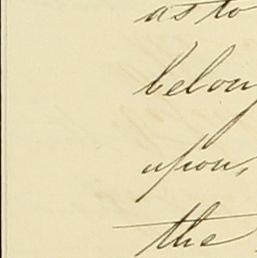 as to
belon
upon,
the